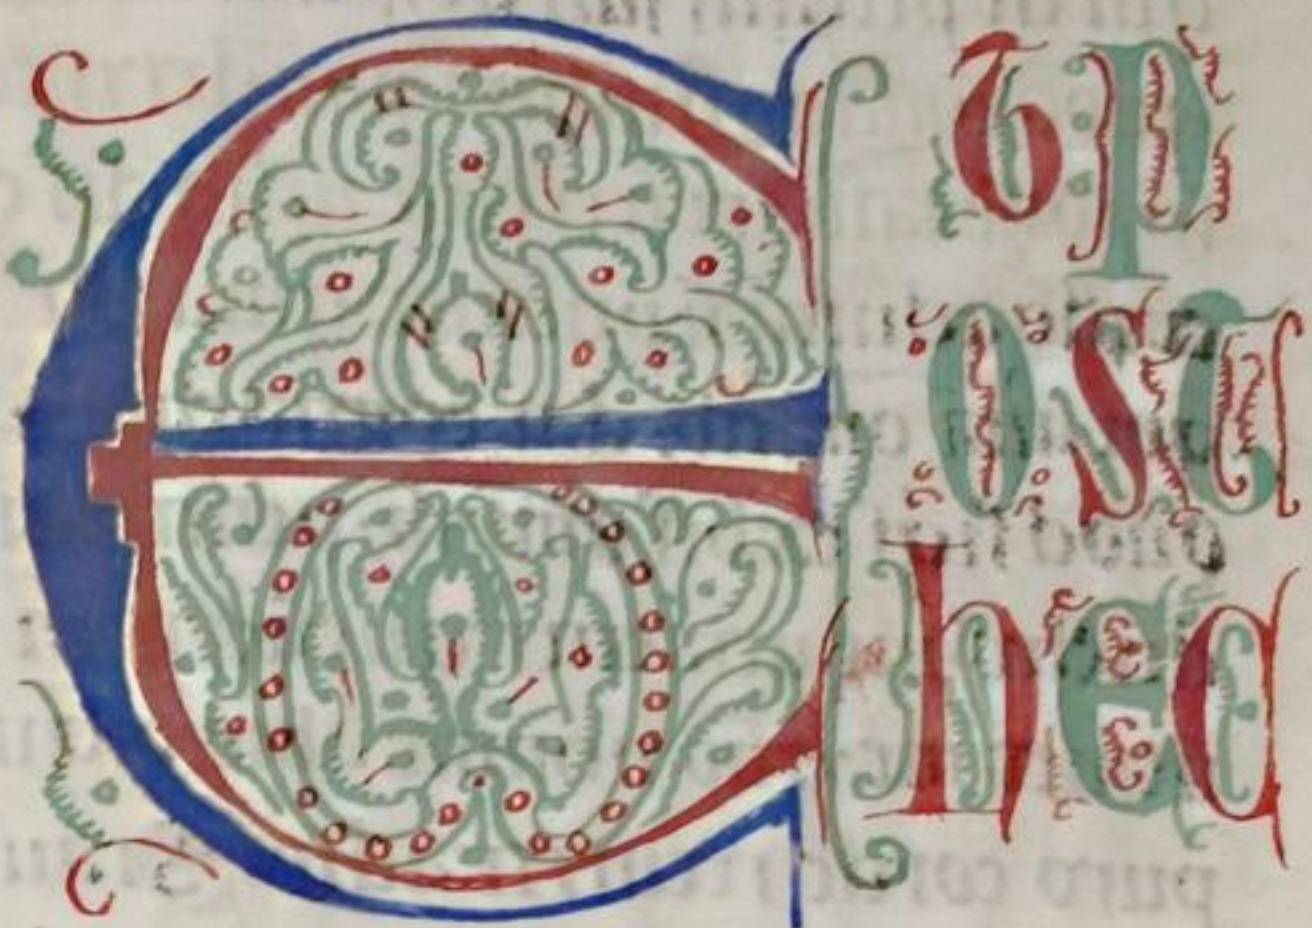 Etp
ost
hec